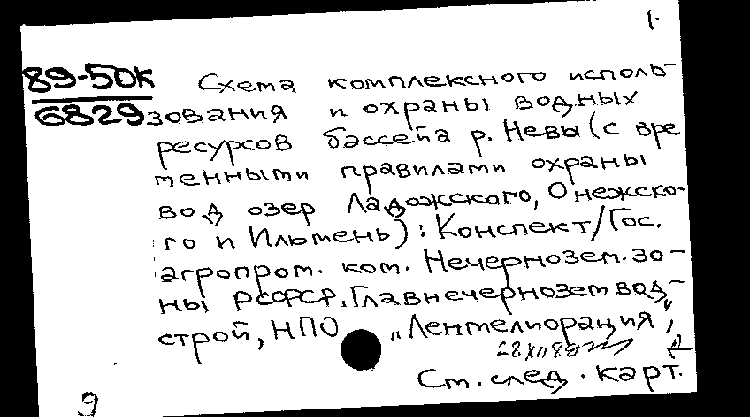 1.
89-50К Схема комплексного исполь-
6829 зования и охраны водных
ресурсов бассейна р. Невы (с вре
менными правилами охраны
вод озер Ладожского, Онежско-
го и Ильмень): Конспект/Гос.
агропром. ком. Нечернозем. зо-
ны РСФСР. Главнечерноземвод-
строй, НПО „Ленмелиорация",
См. след. карт.
9